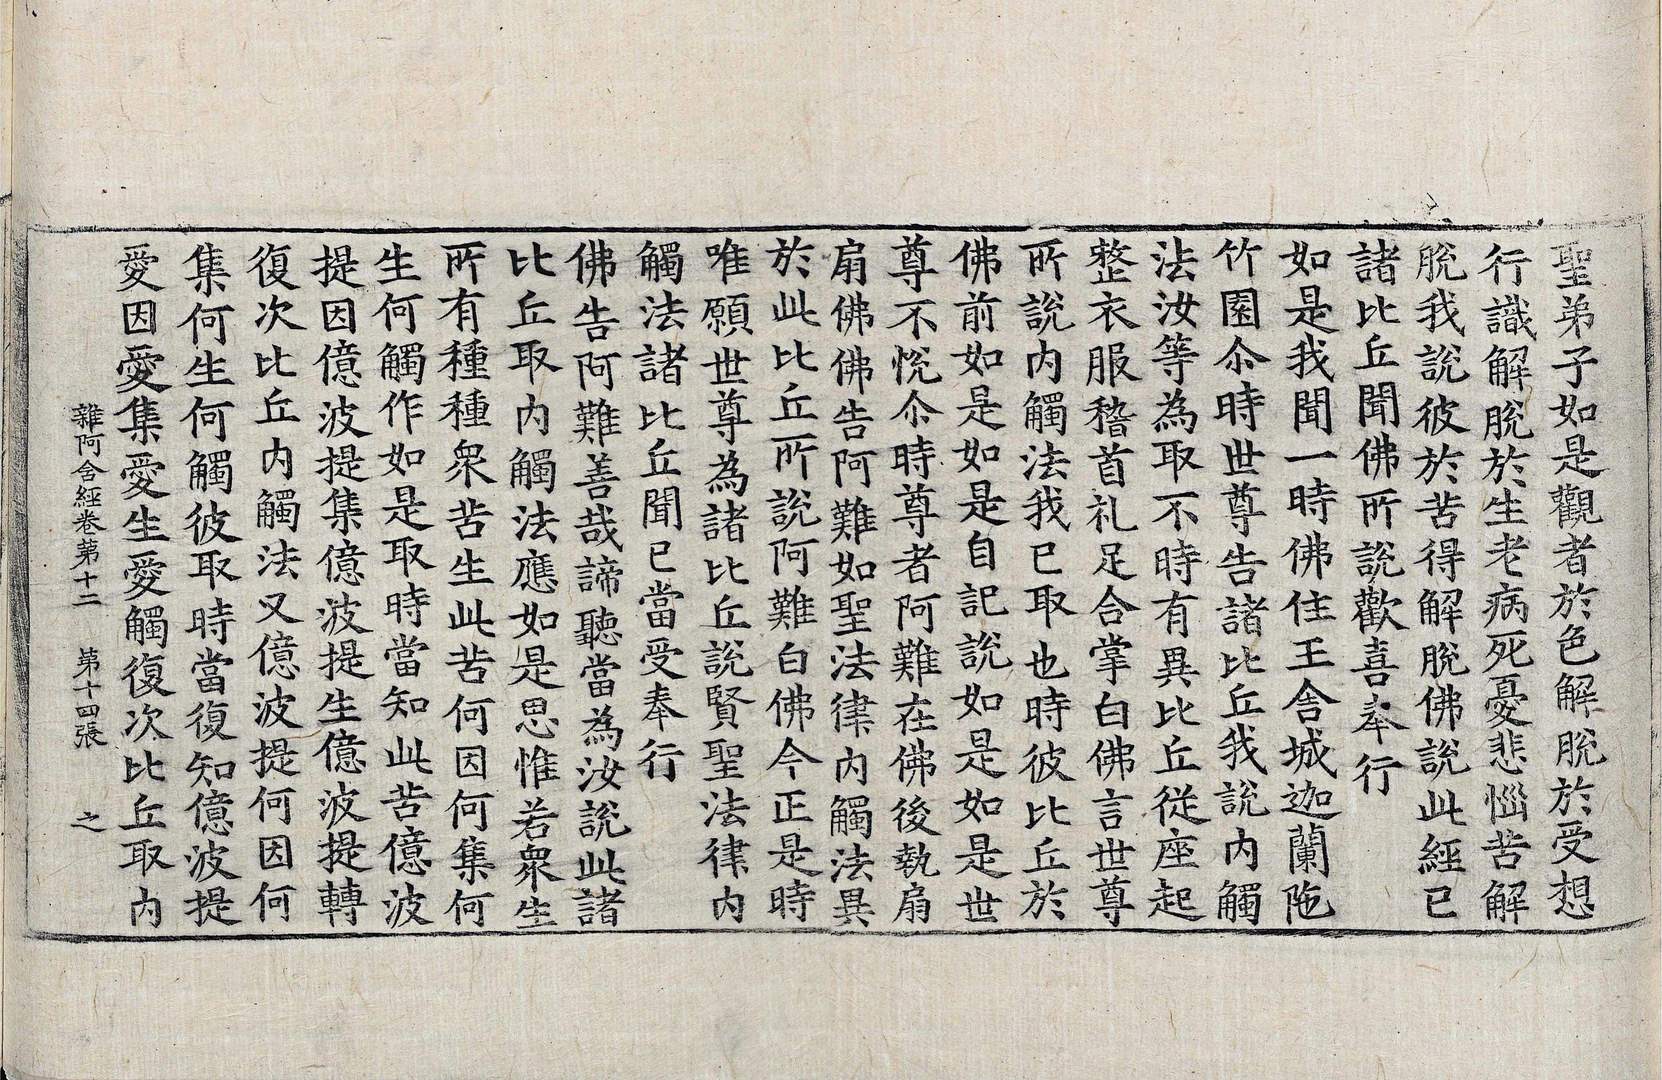 聖弟子如是觀者於色解脫於受想
行識解脫於生老病死憂悲惱苦解
脫我說彼於苦得解脫佛說此經已
諸比丘聞佛所說歡喜奉行
如是我聞一時佛住王舍城迦蘭陁
竹園尒時世尊告諸比丘我說內觸
法汝等為取不時有異比丘從座起
整衣服稽首礼足合掌白佛言世尊
所說內觸法我已取也時彼比丘於
佛前如是如是自記說如是如是世
尊不悅尒時尊者阿難在佛後執扇
扇佛佛告阿難如聖法律內觸法異
於此比丘所說阿難白佛今正是時
唯願世尊為諸比丘說賢聖法律內
觸法諸比丘聞已當受奉行
佛告阿難善哉諦聽當為汝說此諸
比丘取內觸法應如是思惟若衆生
所有種種衆苦生此苦何因何集何
生何觸作如是取時當知此苦億波
提因億波提集億波提生億波提轉
復次比丘內觸法又億波提何因何
集何生何觸彼取時當復知億波提
愛因愛集愛生愛觸復次比丘取內
雜阿含經卷第十二 第十四張 之